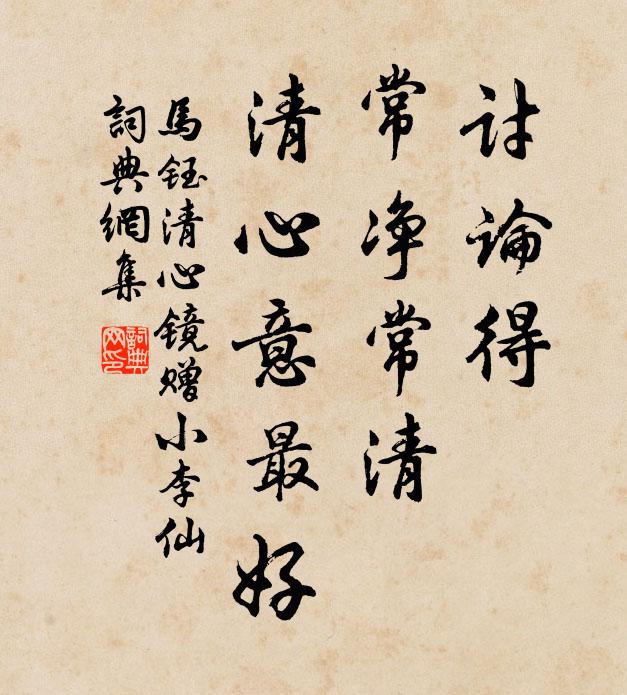 討論得
常净常清
清心意最好
馬鈺清心镜赠小李仙
詞典網集
詞典網印